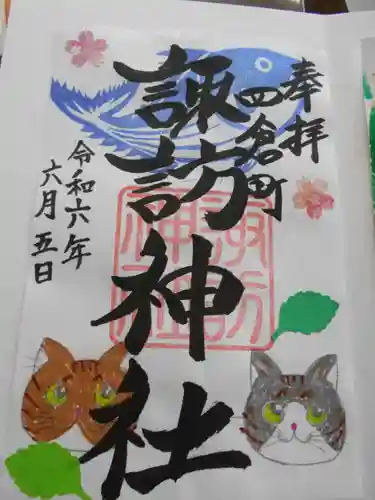 奉拝
四倉町
諏訪神社
諏訪
神社
令和六年
六月五日